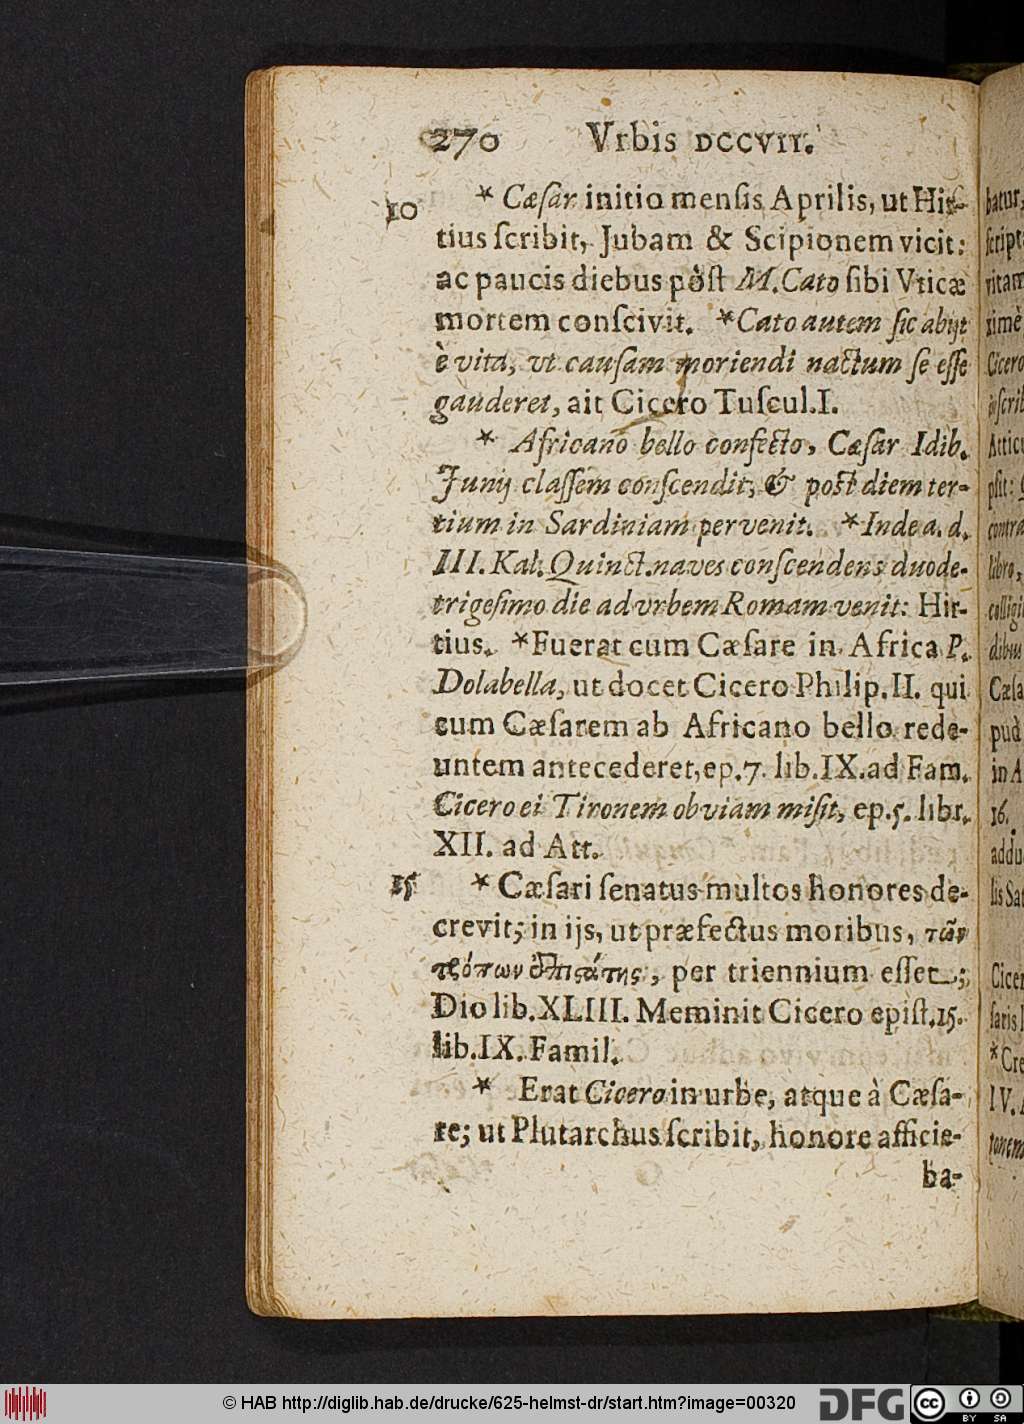 270 Vrbis DCCVII.
10 * Cæſar initio menſis Aprilis, ut Hir-
tius ſcribit, Jubam & Scipionem vicit:
ac paucis diebus pòſt M. Cato ſibi Vticæ
mortem conſcivit. * Cato autem ſic abijt
è vita, vt cauſam moriendi nactum ſe eſſe
gauderet, ait Cicero Tuſcul. I.
* Africano bello confecto, Cæſar Idib.
Junij claſſem conſcendit, & poſt diem ter-
tium in Sardiniam pervenit. * Inde a. d.
III. Kal. Quinct. naves conſcendens duode-
trigeſimo die ad vrbem Romam venit: Hir-
tius. * Fuerat cum Cæſare in Africa P.
Dolabella, ut docet Cicero Philip. II. qui
cum Cæſarem ab Africano bello rede-
untem antecederet, ep. 7. lib. IX. ad Fam.
Cicero ei Tironem obviam miſit, ep. 5. libr.
XII. ad Att.
15 * Cæſari ſenatus multos honores de-
crevit; in ijs, ut præfectus moribus, τῶν
τρόπων ἐπιστάτης, per triennium eſſet;
Dio lib. XLIII. Meminit Cicero epiſt. 15.
lib. IX. Famil.
* Erat Cicero in urbe, atque à Cæſa-
re; ut Plutarchus ſcribit, honore afficie-
ba-
batur,
vitam
ximè
Cicero
contra
libro,
dibus
Cæſa
pud
in A
16.
addu
lis Sat
Cicer
ſaris l
* Cre
IV. A
© HAB http://diglib.hab.de/drucke/625-helmst-dr/start.htm?image=00320
DFG
cc
BY SA